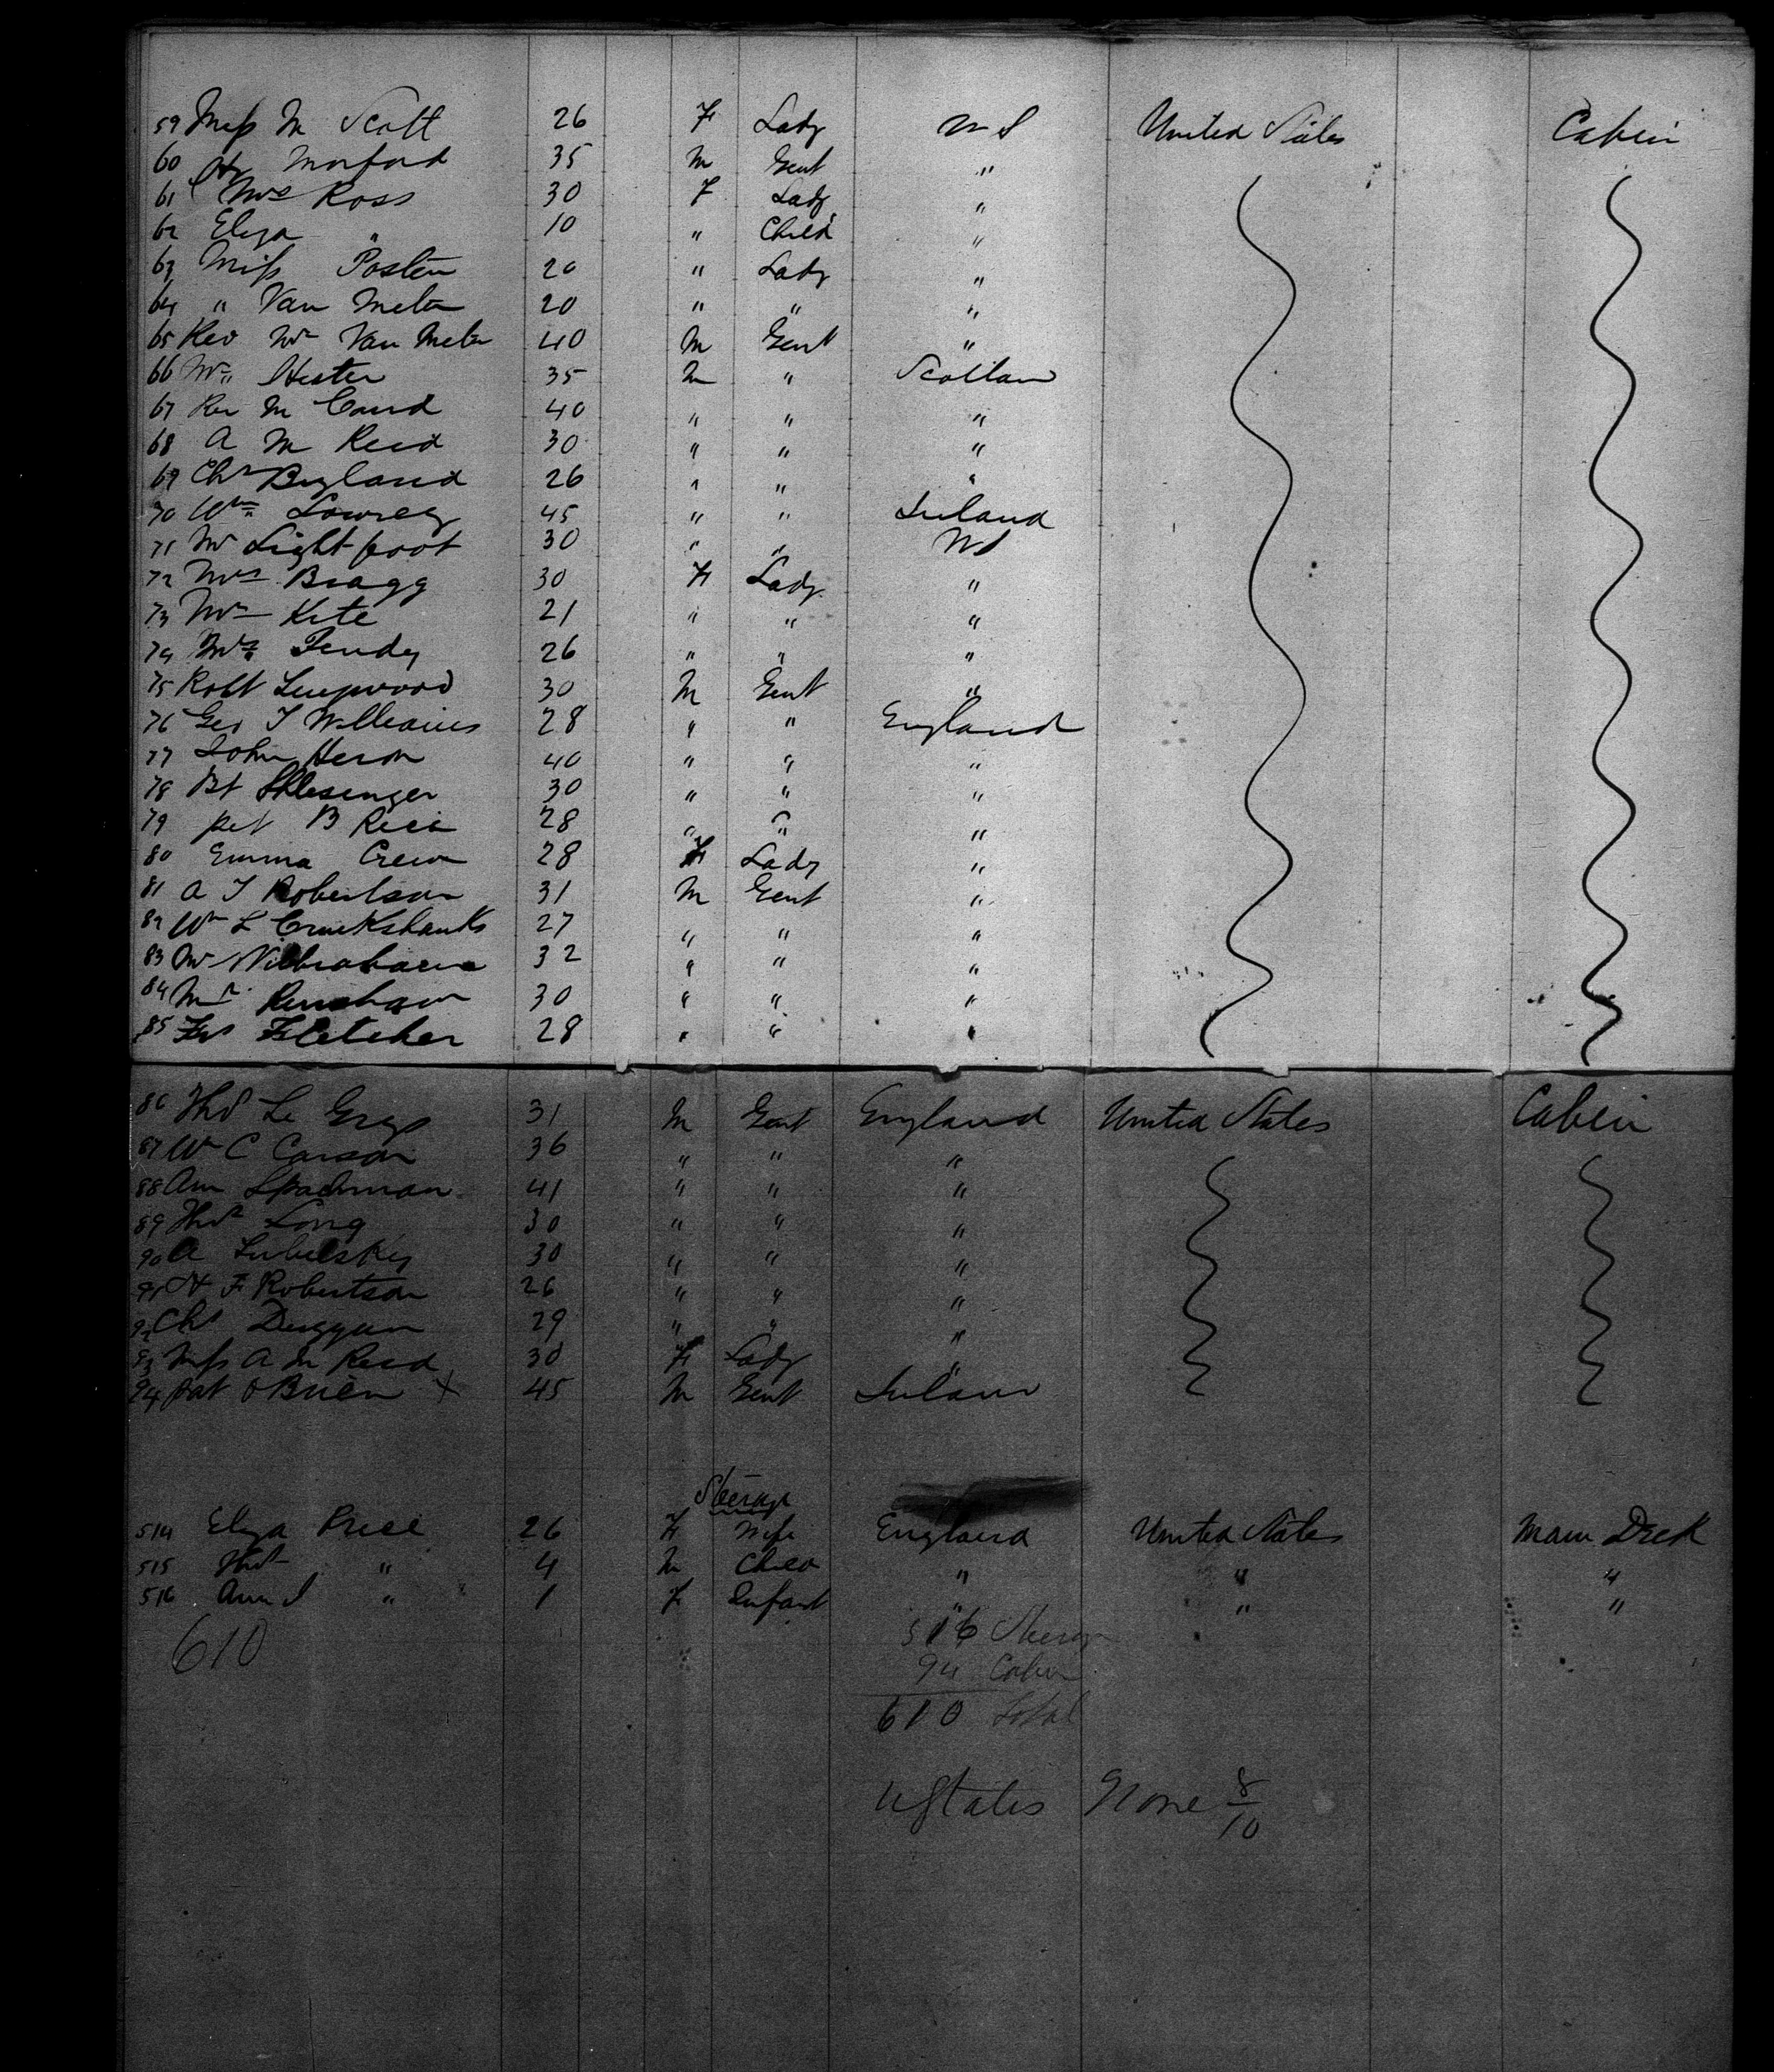 59 Miss M Scott 26 F Lady U S United States Cabin
60 Hy Morford 35 M Gent "
61 Mrs Ross 30 F Lady "
62 Eliza " 10 " Child "
63 Miss Posten 20 " Lady "
64 " Van Meter 20 " " "
65 Rev Mr Van Meter 40 M Gent "
66 Mr Hester 35 M " Scotlan
67 Rev M Caird 40 " " "
68 A M Reid 30 " " "
69 Chs 26 " " "
70 Wm Lowrey 45 " " Ireland
71 Mr Lightfoot 30 " " U S
72 Mrs Bragg 30 F Lady "
73 Mrs Kite 21 " " "
74 Mrs 26 " " "
75 Robt 30 M Gent "
76 Geo T Williams 28 " " England
77 John Heron 40 " " "
78 Bt Shlesinger 30 " " "
79 B 28 " " "
80 Emma Crew 28 F Lady "
81 A T Robertson 31 M Gent "
82 Wm L Cruikshanks 27 " " "
83 Mr 32 " " "
84 Mr Renshaw 30 " " "
85 Fletcher 28 " " "
86 Thos Le Grys 31 M Gent England United States Cabin
87 W C Carson 36 " " "
88 Ann Spackman 41 " " "
89 Thos Long 30 " " "
90 A 30 " " "
91 H F Robertson 26 " " "
92 Chs Duggan 29 " " "
93 Miss A M Reid 30 F Lady "
94 Pat OBrien X 45 M Gent Irelan
Steerage
514 Eliza Price 26 F Wife England United States Main Deck
515 Thos " 4 M Child " " "
516 Ann J " 1 F Infant " " "
610
516 Steerage
94 Cabin
610 Total
U States None 8/10